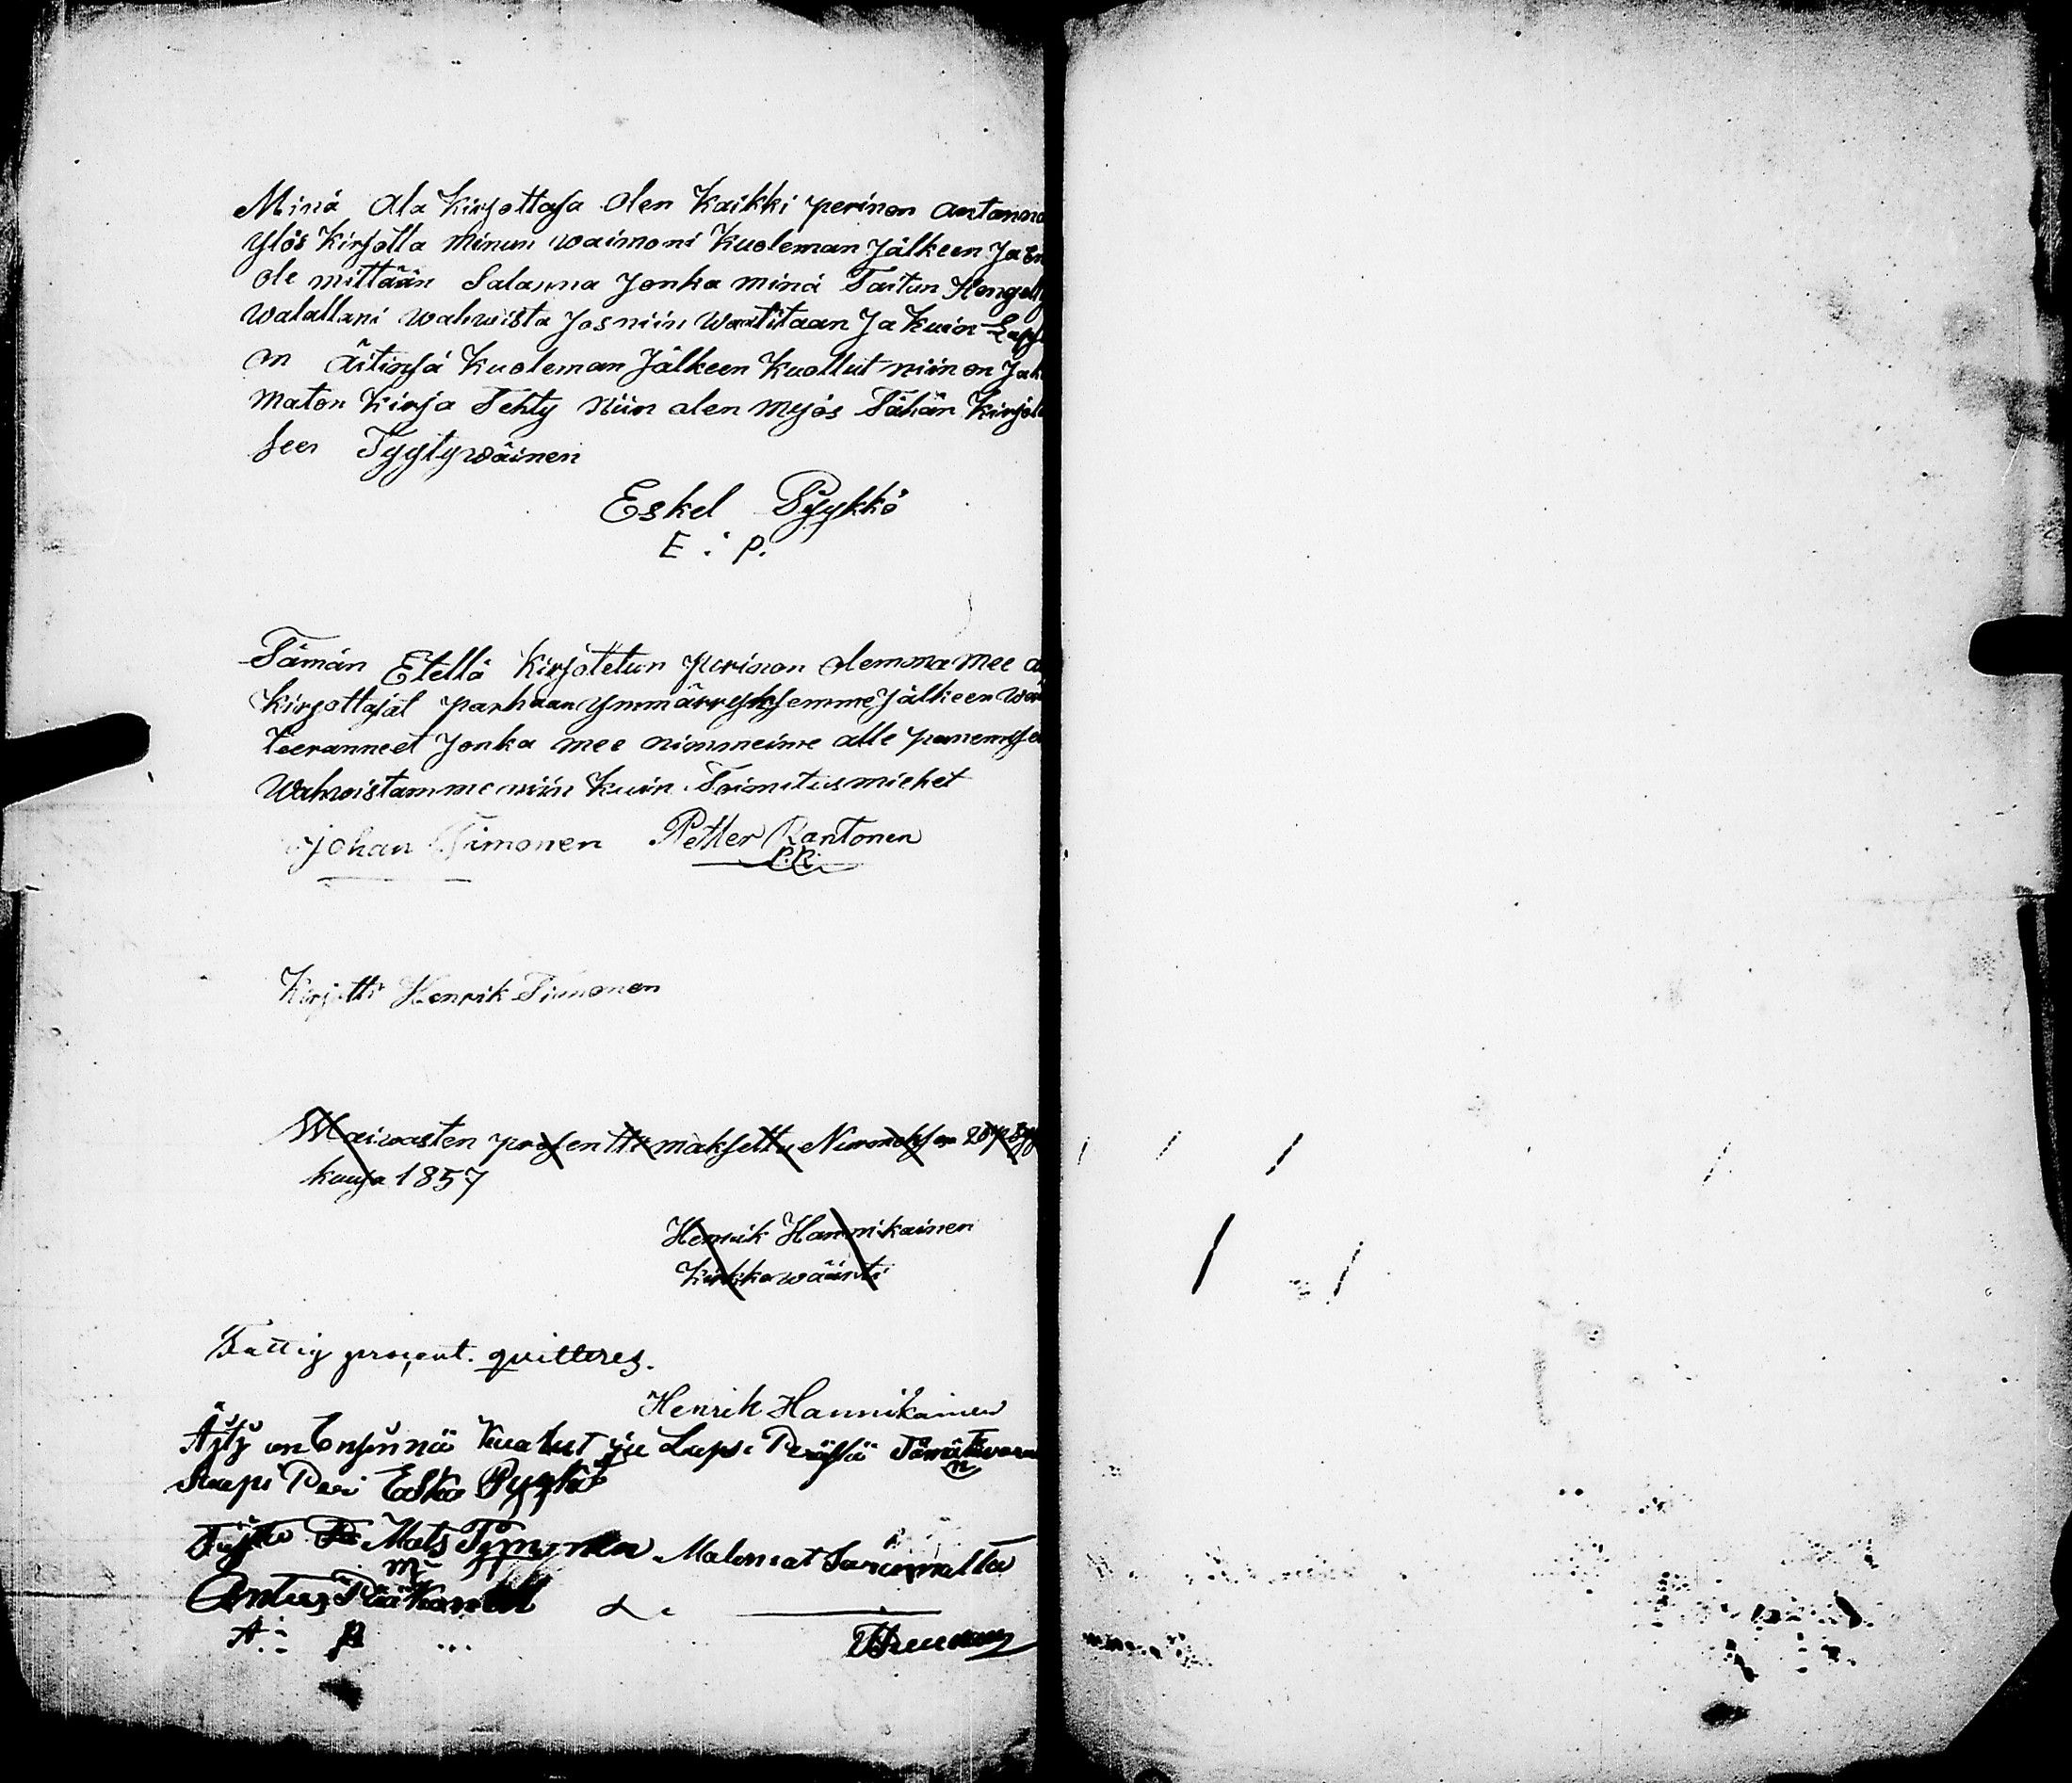 Minä Ala Kirjottaja olen Kaikki perinon antanna
ylös Kirjotta minun waimoni Kuoleman Jälkeen Ja en
ole mittään Salanna Jonka minä Taitan Hengell
walallani wahwista Jos niin waatitaan Ja Kuin Laps
on äitinsä Kuoleman Jälkeen Kuollut niin on Jaka
maton Kirja Tehty Niin olen myös Tähän Kirjotu
seen Tyytywäinen
Eskel Pyykkö
E. P.
Tämän Etellä Kirjotetun perinon olemma mee a
Kirjottajat parhaan ymmärryksemme Jälkeen wär
teeranneet Jonka mee nimmeime alle panemise
Wahwistamme niin Kuin Toimitusmiehet
Johan Timonen Petter Rantonen
P.R.
Kirjotti Henrik Timonen
Waiwasten prosentti maksettu Nurmeksen
kuusa 1857
Henrik Hannikainen
Kirkkowäärti
Fattig procent. quitteres.
Henrik Hannikainen
Äjtj on Ensinnä Kuolut ja Lapsi Perästä Tämä
Saapi Peri Esko Pyykö
Mats Maleniat
Antus
A. P.